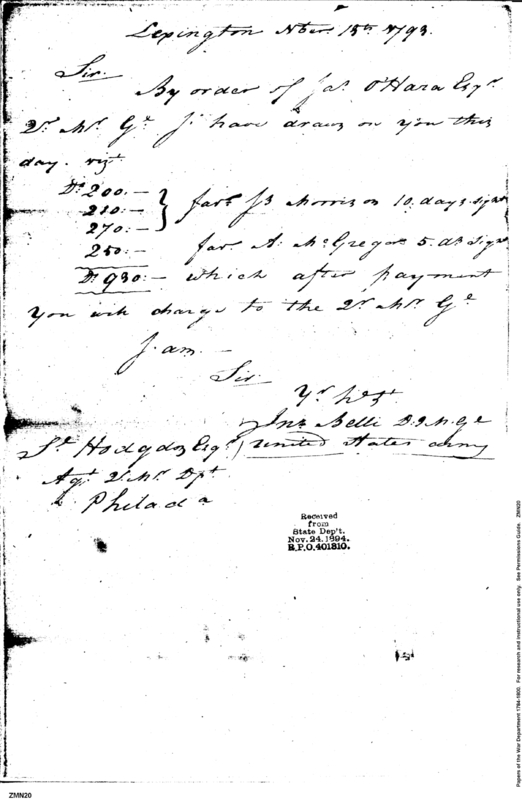 Lexington Nber 15th 1793.
Sir
By order of Jas. O'Hara Esqr.
Qr. Mr. Gl. I have drawn on you this
day. vizt.
Ds. 200.—
210.— } favr. J B Morrison 10. days sight
270.—
250.— favr. A. McGregor 5. ds. sight
Ds. 930.— which after payment
you will charge to the Qr. Mr. Gl.
I am.—
Sir
Yr. hl. St.
Jno. Belli D.Q.M.Gl.
Sl. Hodgdon Esqr. united States army
Agt. Qr. Mr. Dpt.
Philada
Received
from
State Dep't.
Nov. 24. 1894.
R.P.O. 401810.
ZMN20
Papers of the War Department 1784-1800. For research and instructional use only. See Permissions Guide. ZMN20